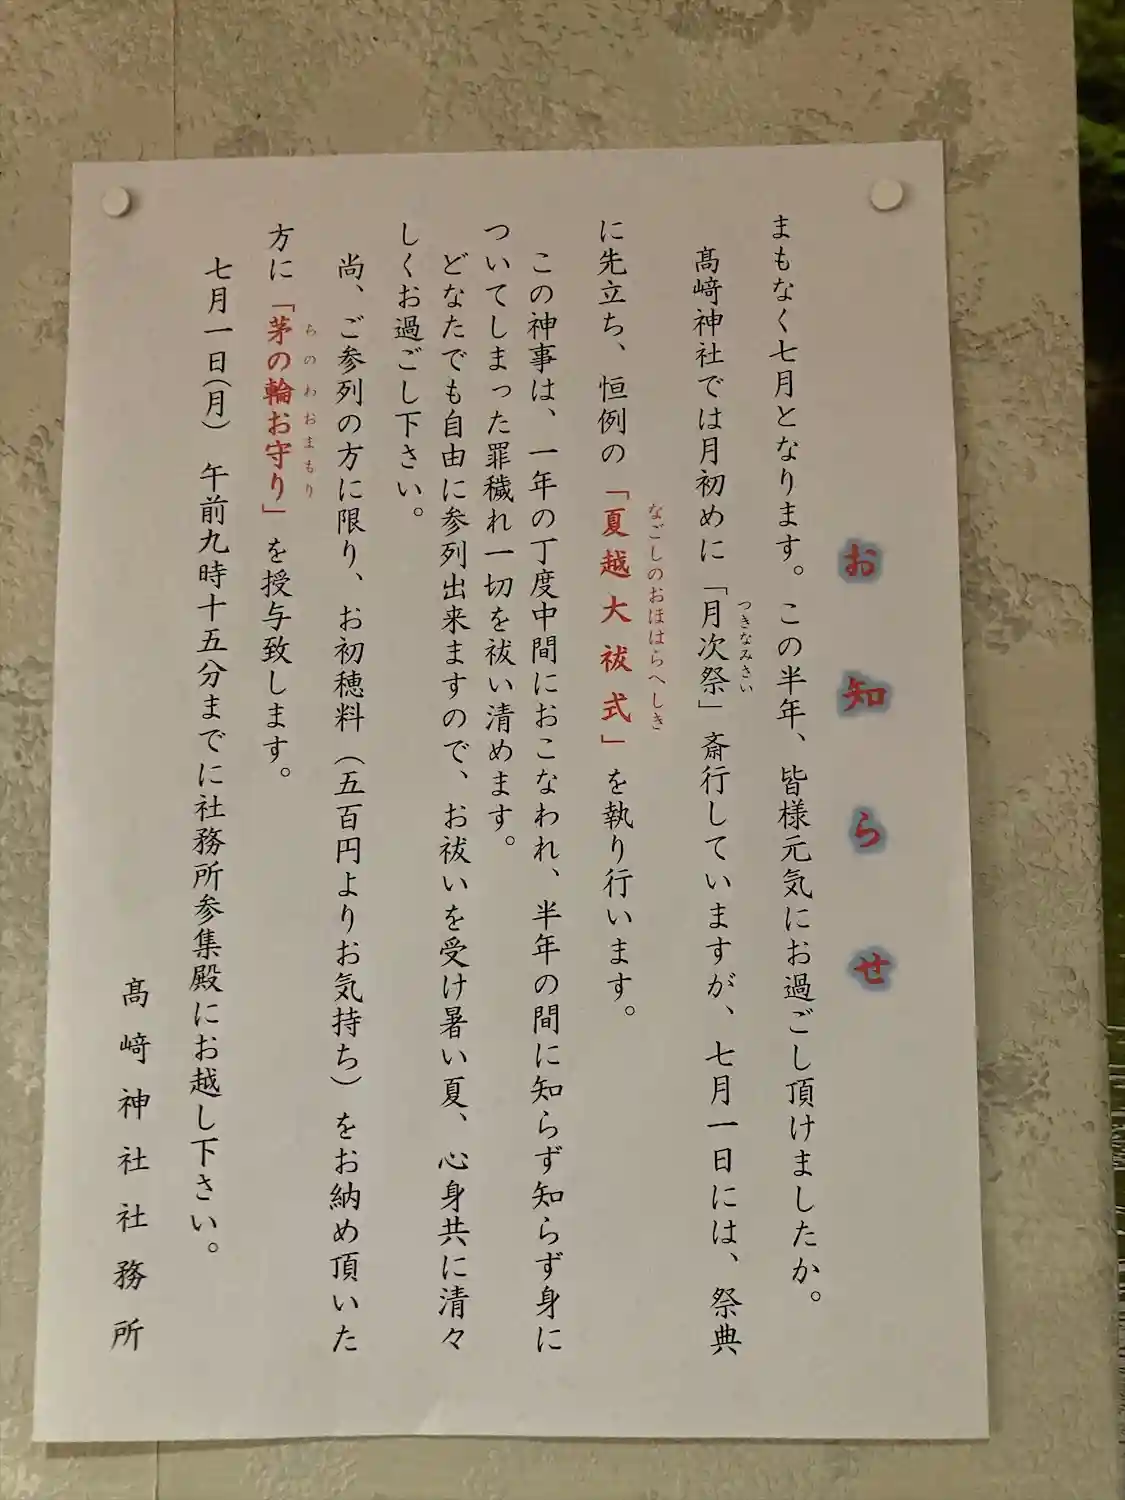 お知らせ
まもなく七月となります。この半年、皆様元気にお過ごし頂けましたか。
つきなみさい
髙﨑神社では月初めに「月次祭」斎行していますが、七月一日には、祭典
なごしのおほはらへしき
に先立ち、恒例の「夏越大祓式」を執り行います。
この神事は、一年の丁度中間におこなわれ、半年の間に知らず知らず身に
ついてしまった罪穢れ一切を祓い清めます。
どなたでも自由に参列出来ますので、お祓いを受け暑い夏、心身共に清々
しくお過ごし下さい。
尚、ご参列の方に限り、お初穂料（五百円よりお気持ち）をお納め頂いた
ちのわおまもり
方に「茅の輪お守り」を授与致します。
七月一日(月)　午前九時十五分までに社務所参集殿にお越し下さい。
髙﨑神社社務所